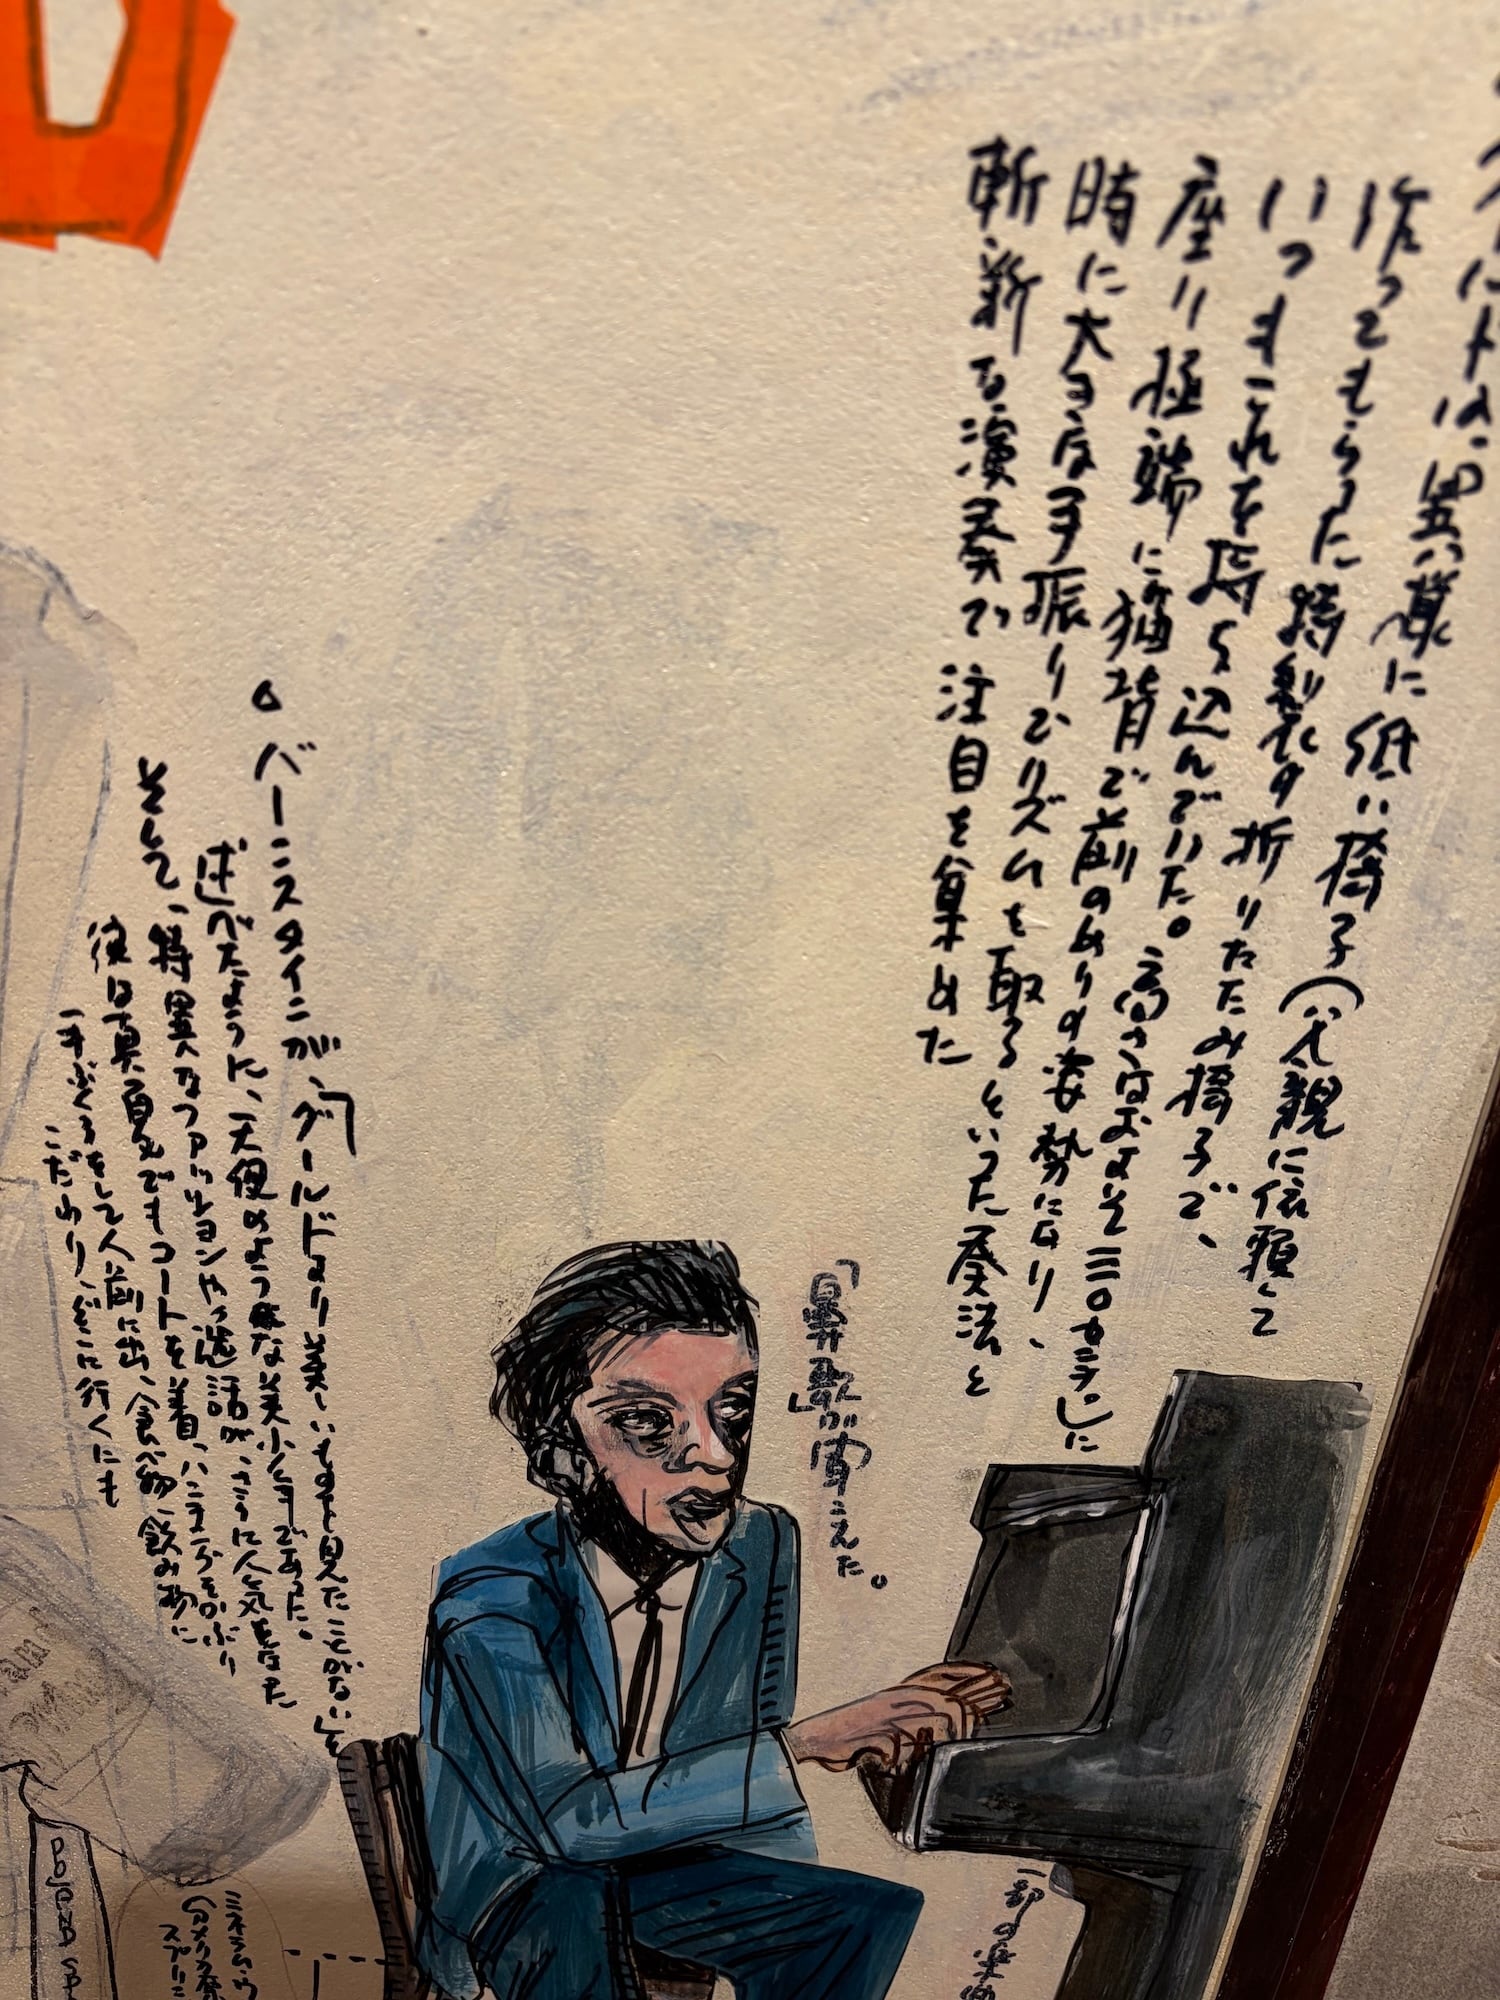 ールドは、異様に低い椅子(父親に依頼して
作ってもらった特製の折りたたみ椅子で、
いつもこれを持ち込んでいた。高さはおよそ三〇センチ)に
座り極端に猫背で前のめりの姿勢になり、
時に大きな手振りでリズムを取るといった奏法と
斬新な演奏で注目を集めた
バーンスタインが、「グールドより美しいものを見たことがない」と
述べたように、天使のような美少年であった。
そして、特異なファッションや逸話が、さらに人気を
彼は真夏でもコートを着、ハンチングをかぶり
手ぶくろをして人前に出、食べ物、飲み物に
こだわり、どこに行くにも
「鼻歌が聞こえた。
POLAND SP
ミネラル
(アメリカ
スプリ
一部の